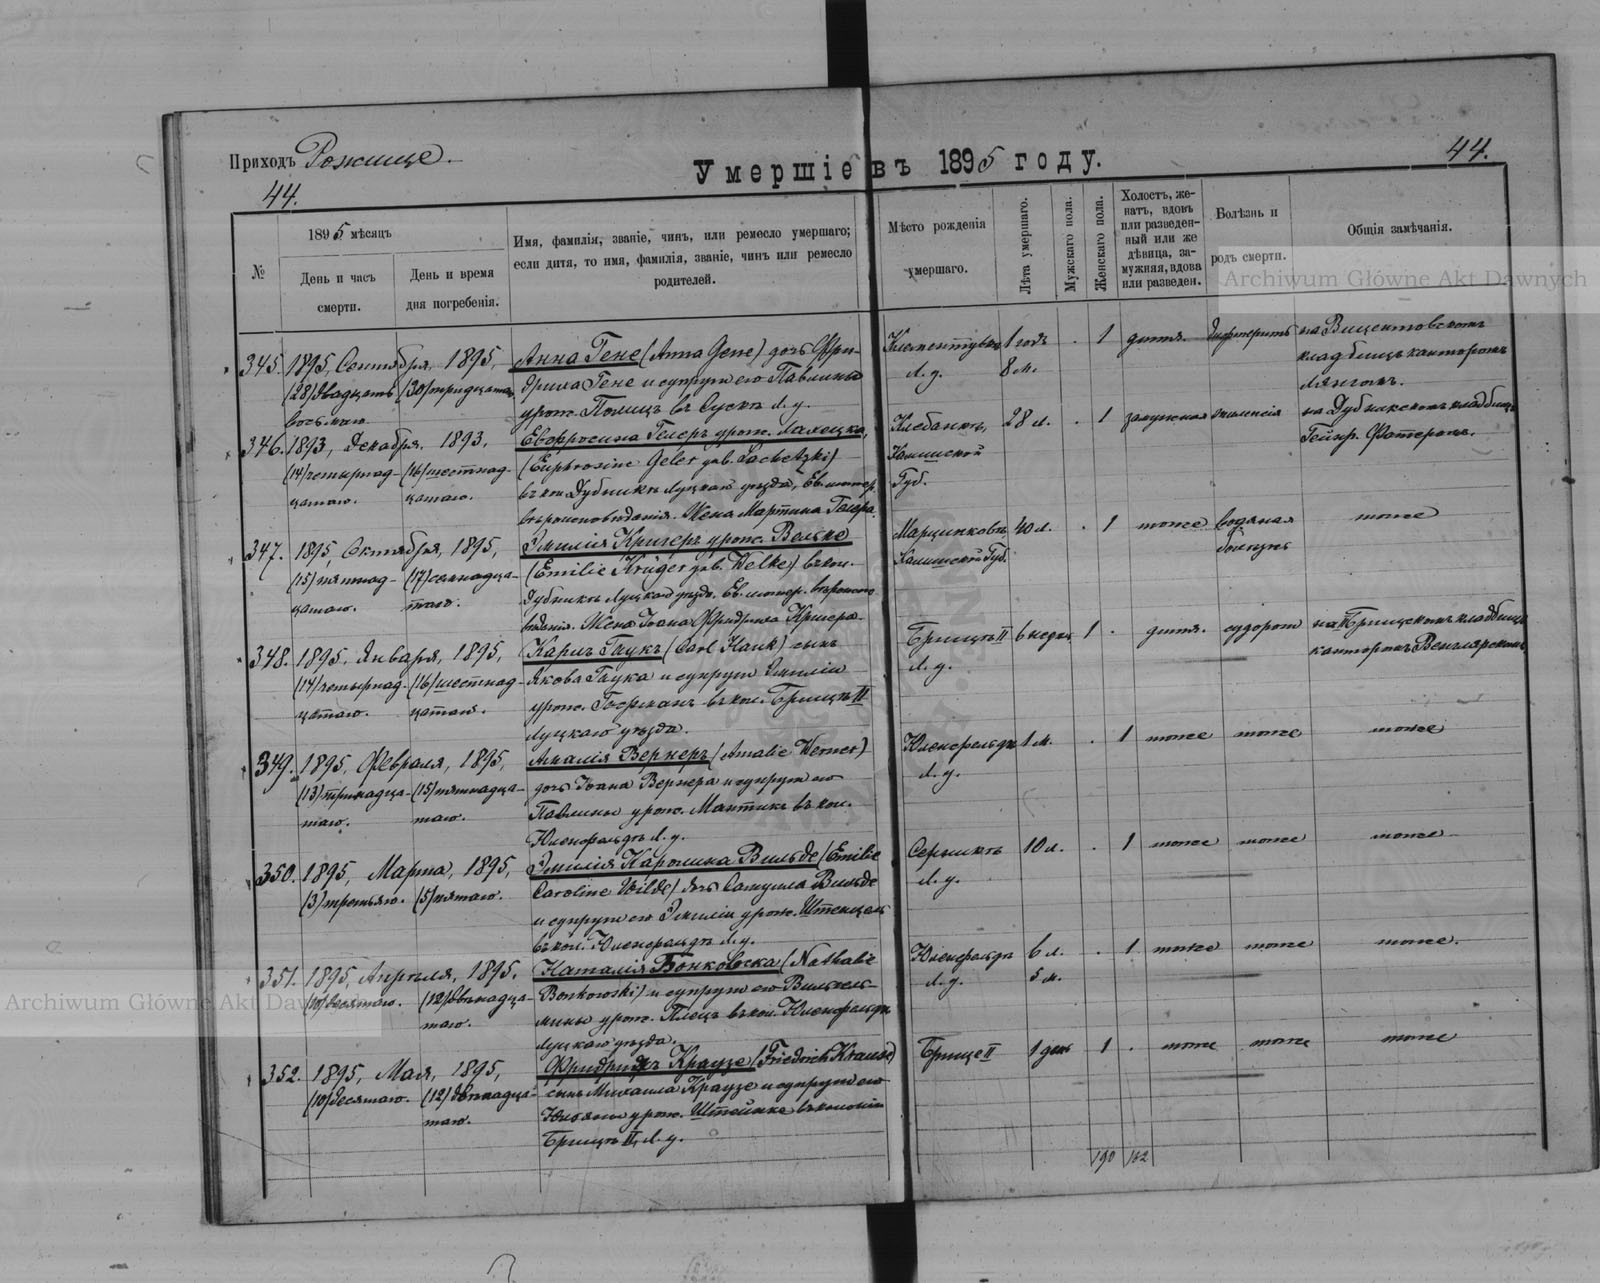 Приходъ Рожище.
44.
Умершіе въ 1895 году.
44.
№
1895 мѣсяцъ
День и часъ
смерти.
День и время
дня погребенія.
Имя, фамилія, званіе, чинъ, или ремесло умершаго;
если дитя, то имя, фамилія, званіе, чинъ или ремесло
родителей.
Мѣсто рожденія
умершаго.
Лѣта умершаго.
Мужскаго пола.
Женскаго пола.
Холостъ, же-
натъ, вдовъ
или разведен-
ный или же
дѣвица, за-
мужняя, вдова
или разведен.
Болѣзнь и
родъ смерти.
Общія замѣчанія.
Archiwum Główne Akt Dawnych
345. 1895, Сентября, 1895,
(28) двадцать
восьмаго
(30) тридцатаго
Анна Гене (Anna Gene) дочь Фри-
дриха Гене и супруги его Павлины
урож. Полицъ въ Сускѣ Л. у.
Л. у.
1 годъ
8 м.
. 1 дитя. дифтеритъ
кладбищѣ канторомъ
346. 1893, Декабря, 1893,
(14) четырнад-
цатаго.
(16) шестнад-
цатаго.
Евфросина Гелеръ урож. Лахецка,
(Euphrosine Geler geb. Lachetzki)
въ кол. Дубникѣ Луцкаго уѣзда, Ев. лютер.
вѣроисповѣданія. Жена Мартина Гелера.
Калишской
Губ.
28 л. . 1 замужняя эпилепсія
на Дубникскомъ кладбищѣ
347. 1895, Октября, 1895,
(15) пятнад-
цатаго.
(17) семнадца-
таго.
Эмилія Кригеръ урож. Вельке
(Emilie Krüger geb. Welke) въ кол.
Дубникѣ Луцкаго уѣзда. Ев. лютер. вѣроиспо-
вѣданія. Жена Іоана Фридриха Кригера.
Калишской Губ.
40 л. . 1 тоже водяная
болѣзнь
тоже
348. 1895, Января, 1895,
(14) четырнад-
цатаго.
(16) шестнад-
цатаго.
Карлъ Гаукъ (Carl Hauk) сынъ
Якова Гаука и супруги Эмиліи
урож. Гофманъ въ кол. Брищѣ II
Луцкаго уѣзда.
Брищѣ II
Л. у.
6 недѣль 1 . дитя. судороги
на II Брищскомъ кладбищѣ
349. 1895, Февраля, 1895,
(13) тринадца-
таго.
(15) пятнадца-
таго.
Амалія Вернеръ (Amalie Werner)
дочь Іоана Вернера и супруги его
Павлины урож. Мантикъ въ кол.
Юленфельдѣ Л. у.
Юленфельдѣ
Л. у.
1 м. . 1 тоже тоже тоже
350. 1895, Марта, 1895,
(3) третьяго. (5) пятаго.
Эмилія Каролина Вильде (Emilie
Caroline Wilde) дочь Самуила Вильде
и супруги его Эмиліи урож. Штенцель
въ кол. Юленфельдѣ Л. у.
Л. у.
10 л. . 1 тоже тоже тоже
351. 1895, Апрѣля, 1895,
(10) десятаго. (12) двѣнадца-
таго.
Наталія Бонковска (Nathalie
Bonkowski) и супруги его Вильгель-
мины урож. Плецъ въ кол. Юленфельдѣ
Луцкаго уѣзда.
Юленфельдѣ
Л. у.
6 л.
5 м.
. 1 тоже тоже тоже.
Archiwum Główne Akt Dawnych
352. 1895, Мая, 1895,
(10) десятаго. (12) двѣнадца-
таго.
Фридрихъ Краузе (Friedrich Krause)
сынъ Михаила Краузе и супруги его
Юліяны урож. Штейнке въ колоніи
Брищѣ II, Л. у.
Брище II 1 день 1 . тоже тоже тоже
190 162